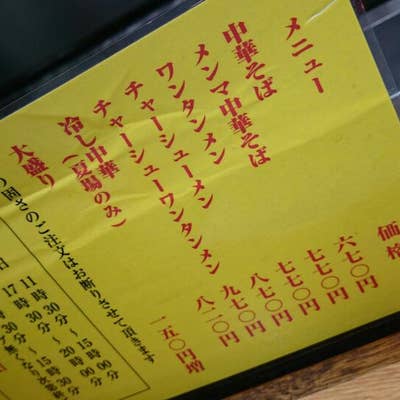 メニュー 価格
中華そば 六七〇円
メンマ中華そば 七七〇円
ワンタンメン 七七〇円
チャーシューメン 八七〇円
チャーシューワンタンメン 九七〇円
冷し中華(夏場のみ) 八二〇円
大盛り 一五〇円増
の固さのご注文はお断りさせて頂きます
11時30分〜15時00分
17時30分〜20時00分
無くなり次第